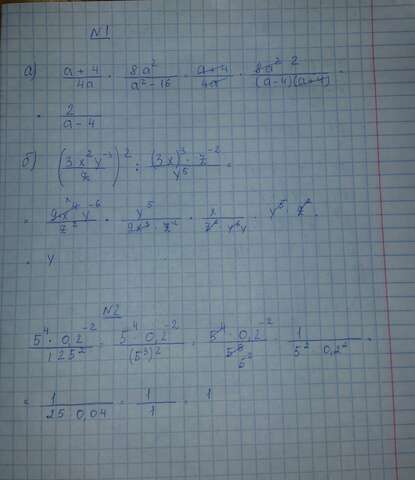 N1
а) (a + 4)/4a · 8a²/(a² - 16) = (a + 4)/4a · 8a² 2/((a - 4)(a + 4)) =
= 2/(a - 4)
б) (3x²y⁻³/z)² : (3x)³ · z⁻²/y⁵ =
= 9x⁴y⁻⁶/z² · y⁵/(9x³ · z⁻²) = x/(z² · y⁶y) · y⁵ z² =
= y
N2
5⁴ · 0,2⁻²/125² = 5⁴ · 0,2⁻²/(5³)² = 5⁴ · 0,2⁻²/5⁶ 5² = 1/(5² · 0,2²) =
= 1/(25 · 0,04) = 1/1 = 1